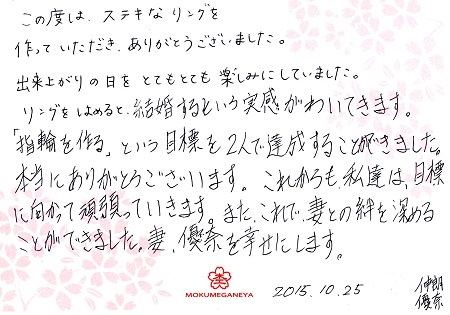 この度は、ステキなリングを
作っていただき、ありがとうございました。
出来上がりの日をとてもとても楽しみにしていました。
リングをはめると、結婚するという実感がわいてきます。
「指輪を作る」という目標を2人で達成することができました。
本当にありがとうございます。これからも、私達は、目標
に向かって頑張っていきます。また、これで、妻との絆を深める
ことができました。妻、優奈を幸せにします。
MOKUMEGANEYA
2015.10.25
伸朗
優奈